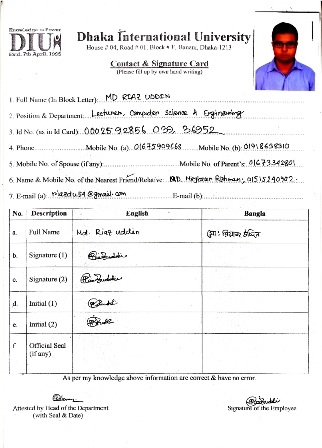 Knowledge is Power
DIU
Estd. 7th April, 1995
Dhaka International University
House # 04, Road # 01, Block # F, Banani, Dhaka-1213
Contact & Signature Card
(Please fill up by own hand writing)
1. Full Name (In Block Letter): MD RIAZ UDDIN
2. Position & Department: Lecturer, Computer Science & Engineering
3. Id No. (as in Id Card): 0002592856 039, 36952
4. Phone: Mobile No. (a): 01675909168 Mobile No. (b): 01918658310
5. Mobile No. of Spouse (if any): Mobile No. of Parent's: 01673342801
6. Name & Mobile No. of the Nearest Friend/Relative: MD. Mejanur Rahman, 01515290902
7. E-mail (a): riazdu59@gmail.com E-mail (b):
No. Description English Bangla
a. Full Name Md. Riaz uddin মো: রিয়াজ উদ্দিন
b. Signature (1)
c. Signature (2)
d. Initial (1)
e. Initial (2)
f. Official Seal
(if any)
As per my knowledge above information are correct & have no error.
Attested by Head of the Department
(with Seal & Date)
Signature of the Employee